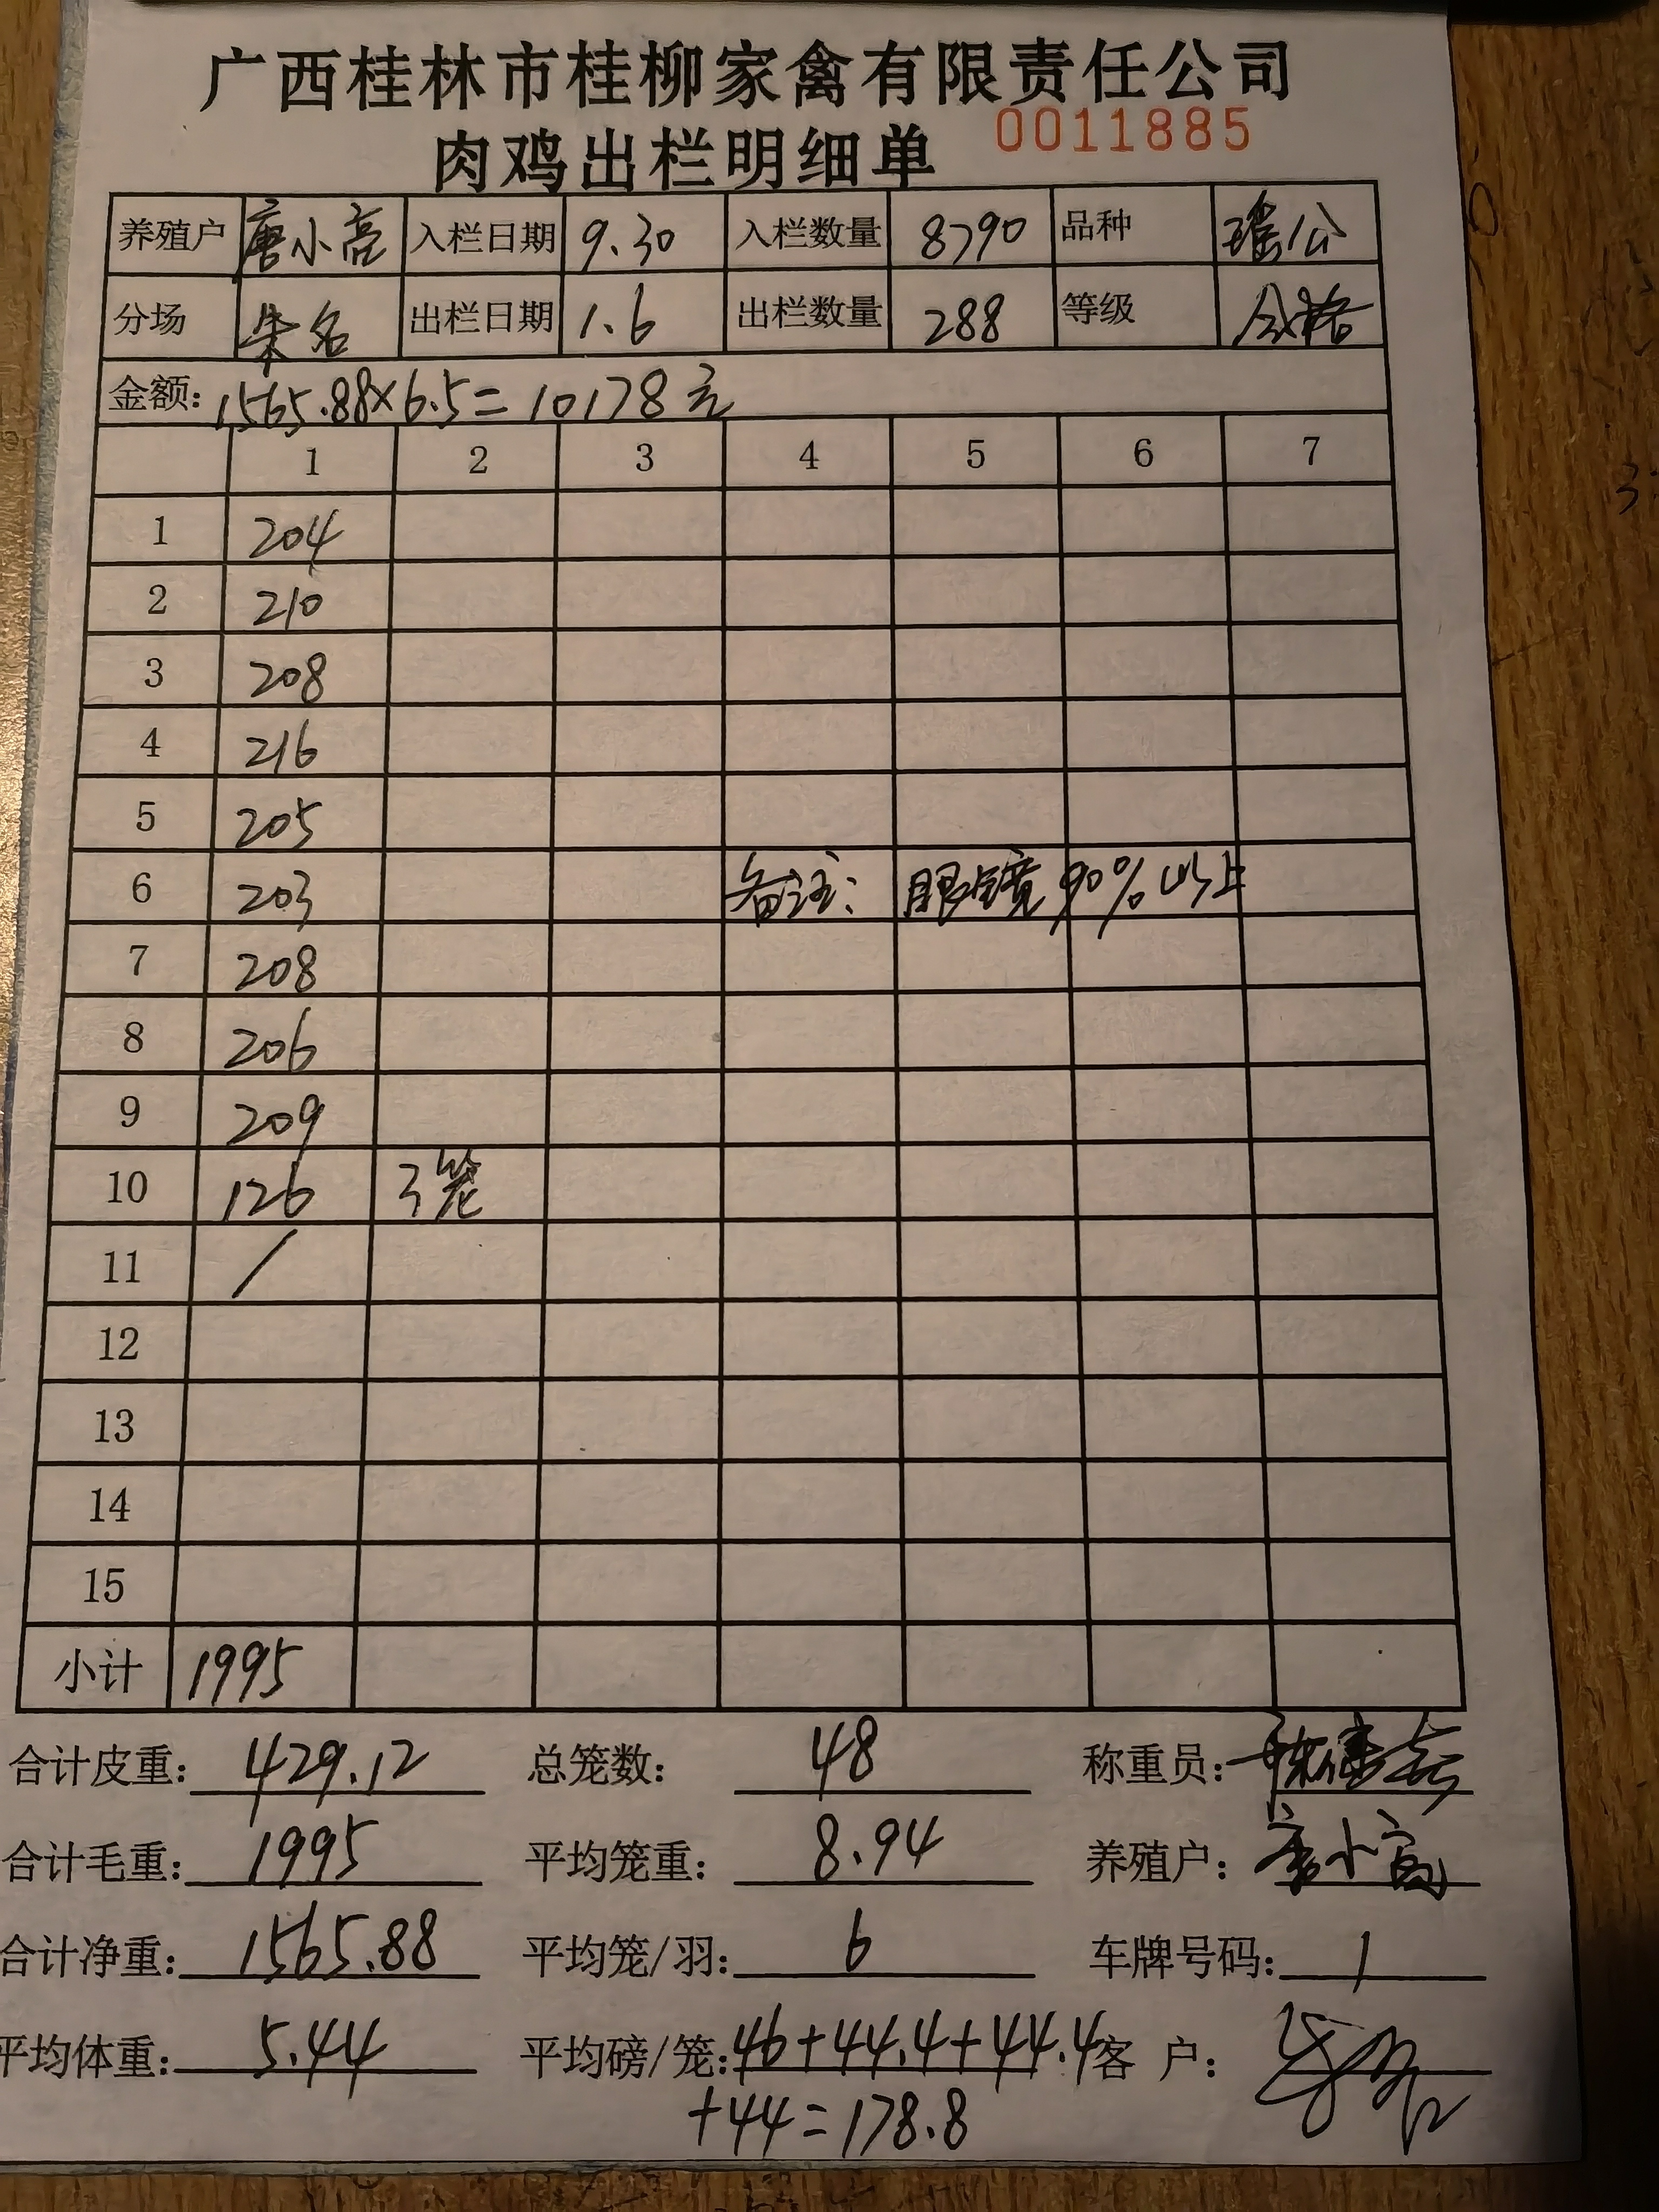 广西桂林市桂柳家禽有限责任公司
肉鸡出栏明细单 0011885
养殖户 唐小亮 入栏日期 9.30 入栏数量 8790 品种 瑶公
分场 朱名 出栏日期 1.6 出栏数量 288 等级 合格
金额: 1565.88×6.5=10178元
1 2 3 4 5 6 7
1 204
2 210
3 208
4 216
5 205
6 203 备注: 眼镜90%以上
7 208
8 206
9 209
10 126 3笼
11 /
12
13
14
15
小计 1995
合计皮重: 429.12 总笼数: 48 称重员:
合计毛重: 1995 平均笼重: 8.94 养殖户:
合计净重: 1565.88 平均笼/羽: 6 车牌号码: 1
平均体重: 5.44 平均磅/笼: 46+44.4+44.4 客 户:
+44=178.8